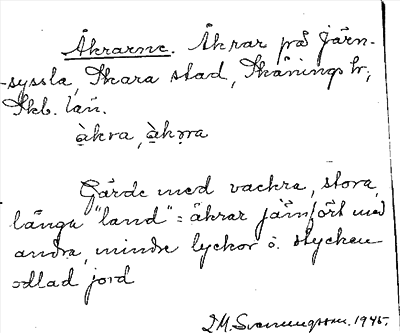 Åkrarne. Åkrar på Järn-
-syssla, Skara stad, Skånings hr,
Skb. län.
åkra, åkrra
Gärde med vackra, stora,
långa "land" = åkrar jämfört med
andra, mindre lyckor o. stycken
odlad jord
I.M. Svenungsson. 1945.